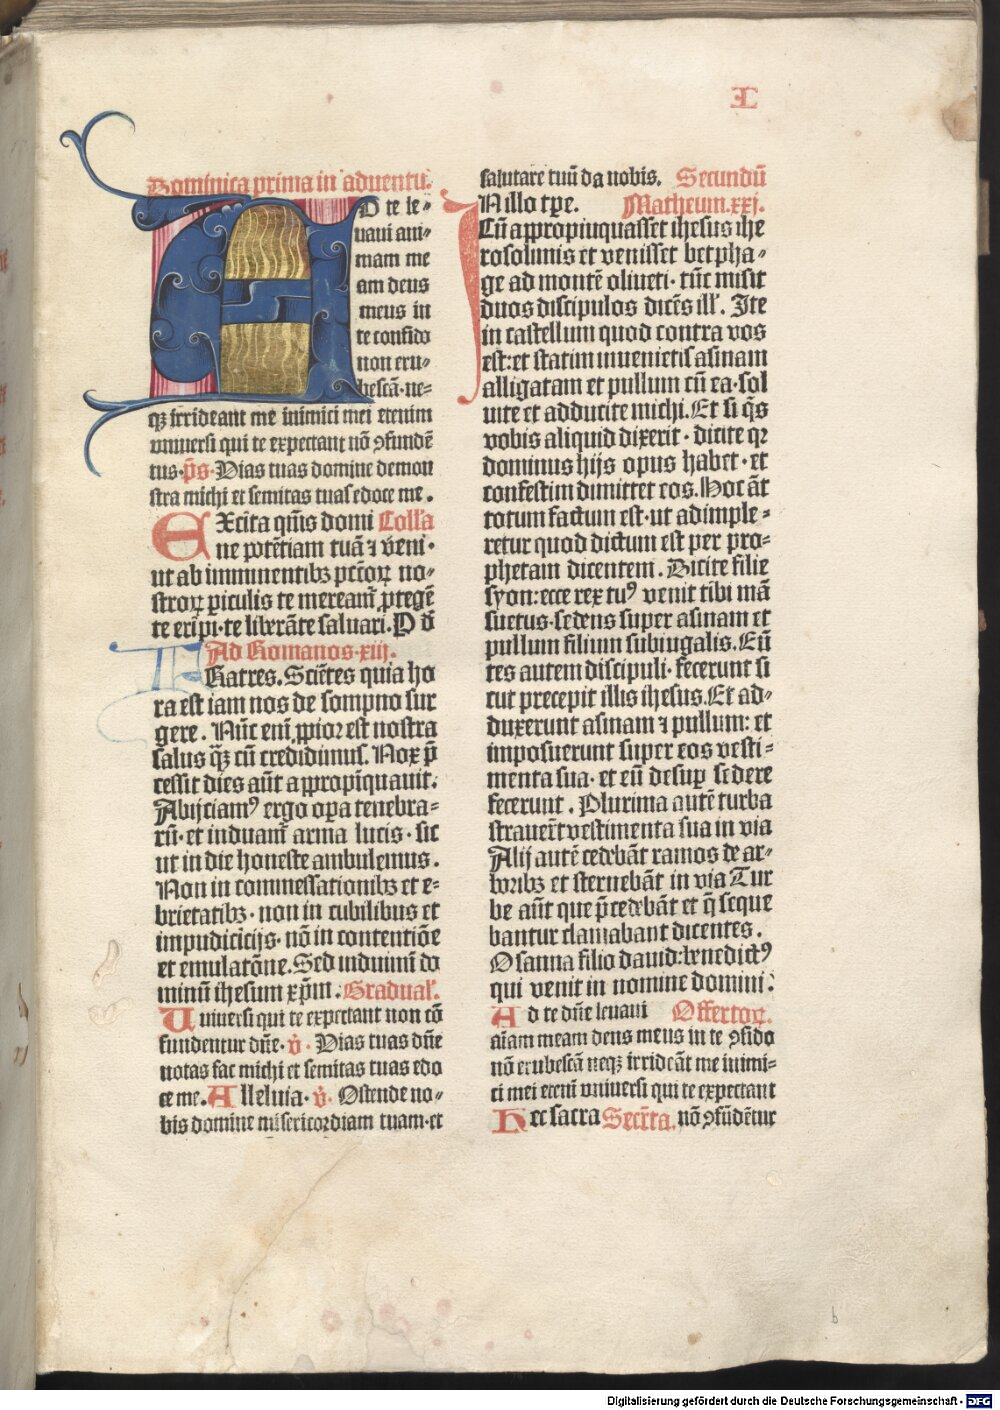 I
Dominica prima in aduentu.
AD te le-
uaui ani-
mam me
am deus
meus in
te confido
non eru-
bescā·ne-
qꝫ irrideant me inimici mei etenim
vniuersi qui te expectant nō ꝯfundē
tus·p̄s·Vias tuas domine demon
stra michi et semitas tuas edoce me.
EXcita qm̄s domi Coll'a
ne potētiam tuā ⁊ veni·
ut ab imminentibꝫ pctōꝝ no-
stroꝝ ꝑiculis te mereamꝛ̄ ꝓtegē
te eripi·te liberāte saluari.P d̄
Ad Romanos·xiij.
FRatres. Sciētes quia ho
ra est iam nos de sompno sur
gere. Nūc eni ꝓpior est nostra
salus q̄ꝫ cū credidimus. Nox p̄
cessit dies aūt appropīquauit.
Abijciamꝰ ergo oꝑa tenebra-
rū·et induamꝛ̄ arma lucis·sic
ut in die honeste ambulemus.
Non in commessationibꝫ et e-
brietatibꝫ·non in cubilibus et
impudicicijs·nō in contentiōe
et emulatōne.Sed induimī do
minū ihesum xp̄m. Gradual'.
Uniuersi qui te expectant non cō
fundentur dn̄e. v̄. Vias tuas dn̄e
notas fac michi et semitas tuas edo
ce me.Alleluia. v̄. Ostende no-
bis domine misericordiam tuam·et
salutare tuū da nobis. Secundū
IN illo tꝑe. Matheum.xxj.
Cū appropinquasset ihesus ihe
rosolimis et venisset betpha-
ge ad montē oliueti·tūc misit
duos discipulos dicēs ill'. Ite
in castellum quod contra vos
est:et statim inuenietis asinam
alligatam et pullum cū ea·sol
uite et adducite michi.Et si q̄s
vobis aliquid dixerit·dicite qꝛ
dominus hijs opus habet·et
confestim dimittet eos.Hoc āt
totum factum est·ut adimple-
retur quod dictum est per pro-
phetam dicentem. Dicite filie
syon:ecce rex tuꝰ venit tibi mā
suetus·sedens super asinam et
pullum filium subiugalis.Eū
tes autem discipuli·fecerunt si
cut precepit illis ihesus.Et ad-
duxerunt asinam ⁊ pullum: et
imposuerunt super eos vesti-
menta sua·et eū desuꝑ sedere
fecerunt. Plurima autē turba
strauerūt vestimenta sua in via
Alij autē cedebāt ramos de ar-
boribꝫ et sternebāt in via Tur
be aūt que p̄cedebāt et q̄ seque
bantur clamabant dicentes.
Osanna filio dauid:benedictꝰ
qui venit in nomine domini:
Ad te dn̄e leuaui Offertoꝝ.
aīam meam deus meus in te ꝯfido
nō erubescā neqꝫ irrideāt me inimi-
ci mei etenī vniuersi qui te expectant
Hec sacra Secr̄ta. nō ꝯfūdētur
b
Digitalisierung gefördert durch die Deutsche Forschungsgemeinschaft - DFG